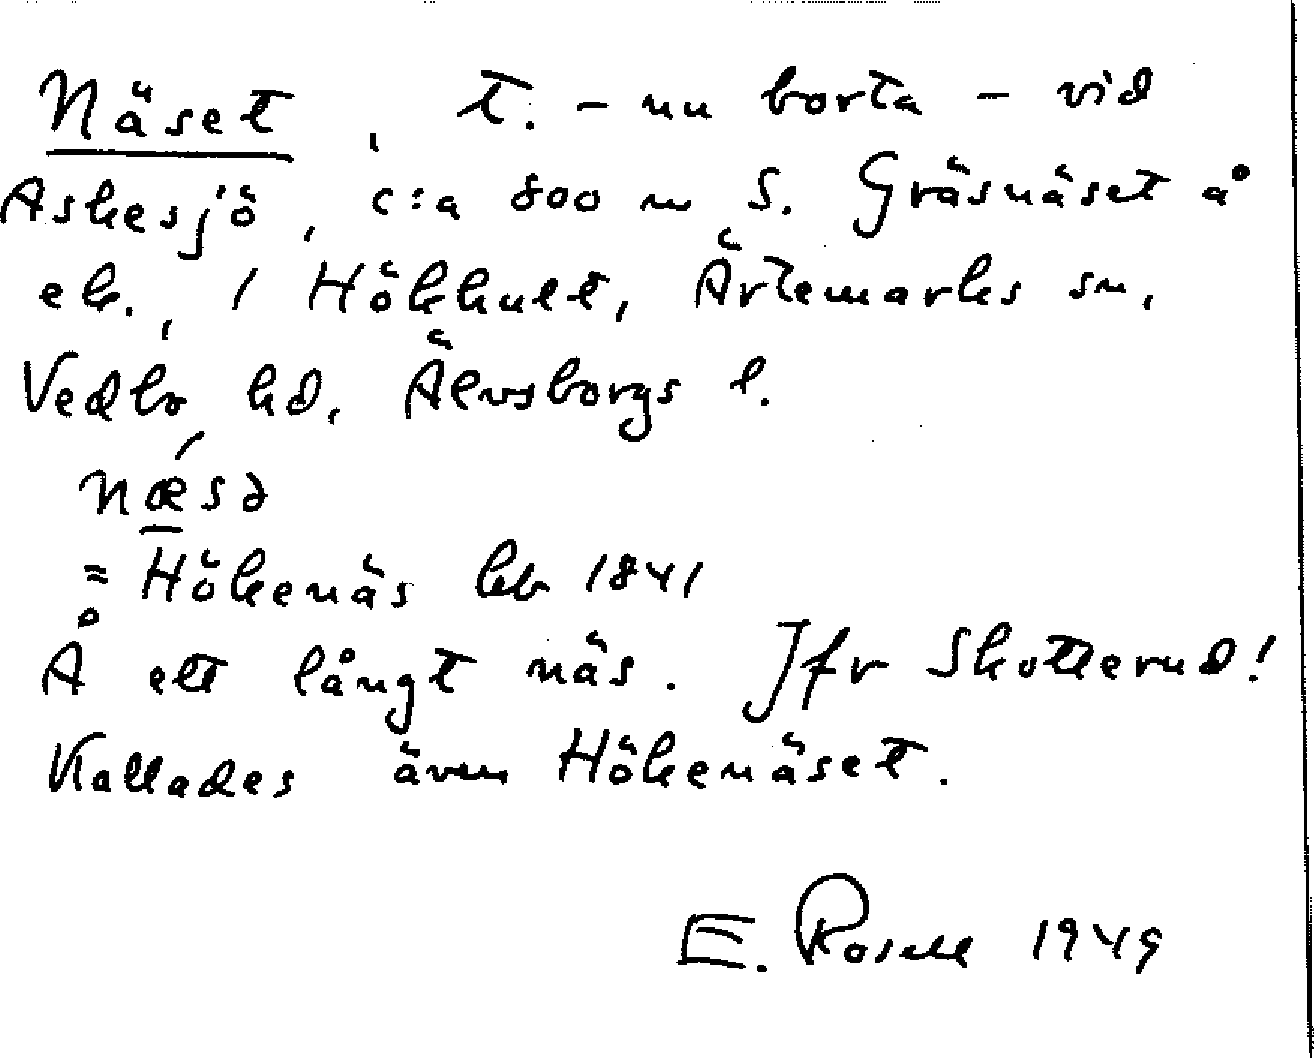 Näset, t. - nu borta - vid
Askesjö, c:a 800 m S. Gräsnäset å
ek., 1 Hökhult, Ärtemarks sn,
Vedbo hd, Älvsborgs l.
næ´sə
= Hökenäs kb 1841
Å ett långt näs. Jfr Skotterud!
Kallades även Hökenäset.
E. Rosell 1949